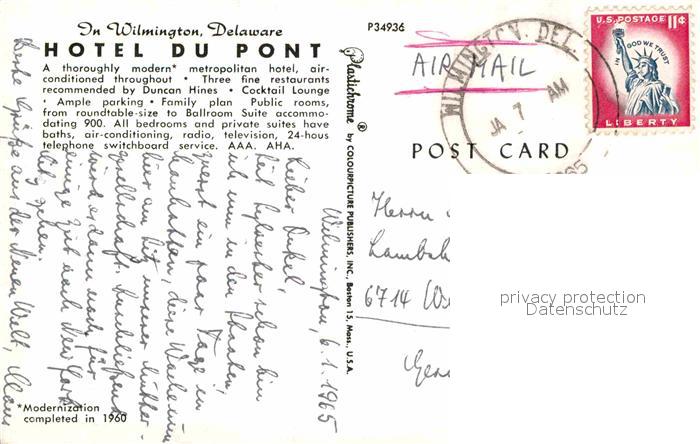 In Wilmington, Delaware
HOTEL DU PONT
A thoroughly modern* metropolitan hotel, air-
conditioned throughout • Three fine restaurants
recommended by Duncan Hines • Cocktail Lounge
• Ample parking • Family plan Public rooms,
from roundtable-size to Ballroom Suite accommo-
dating 900. All bedrooms and private suites have
baths, air-conditioning, radio, television, 24-hous
telephone switchboard service. AAA. AHA.
*Modernization
completed in 1960
Wilmington, 6.1.1965
Lieber Onkel,
seit schon bin
ich nun in den Staaten,
zuerst ein paar Tage in
Manhattan, diese Woche nun
hier am Sitz unserer Mutter-
gesellschaft. Anschließend
wird es dann noch für
einige Zeit nach New York
gehen.
Grüße aus der Neuen Welt, Claus
Plastichrome ® by COLOURPICTURE PUBLISHERS, INC., Boston 15, Mass., U.S.A.
P34936
AIR MAIL
POST CARD
WILMINGTON, DEL.
JA 7 AM
U.S. POSTAGE 11¢
IN GOD WE TRUST
LIBERTY
Herrn
6714
privacy protection
Datenschutz